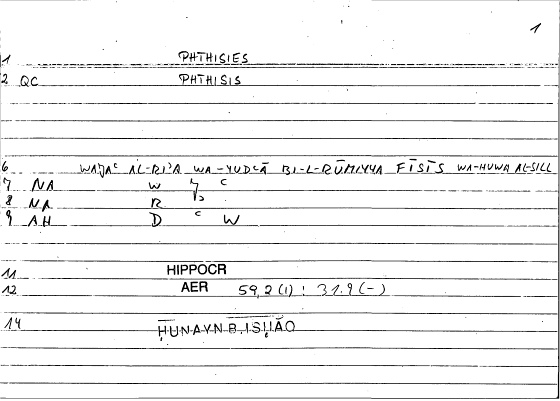 1
1 PHTHISIES
2 QC PHTHISIS
6 WAǦAʿ AL-RIʾA WA-YUDʿĀ BI-L-RŪMIYYA FĪSĪS WA-HUWA AL-SILL
7 NA W ǧ ʿ
8 NA R
9 AH D ʿ W
11 HIPPOCR
12 AER 59,2 (1) : 31.9 (-)
14 ḤUNAYN B. ISḤĀQ